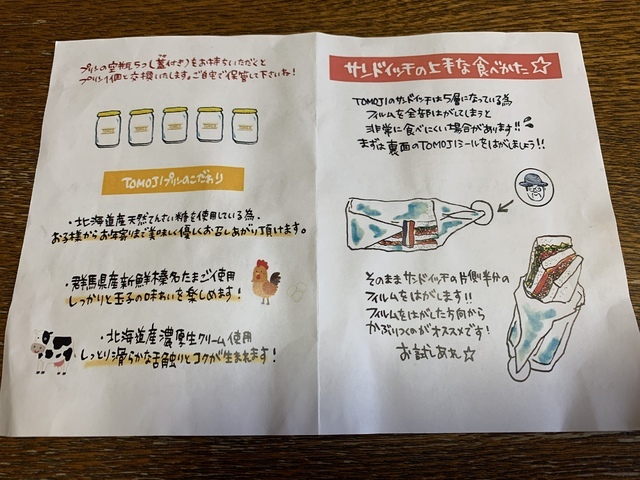 プリンの空瓶5つ(蓋付き)をお持ちいただくと
プリン1個と交換いたします。ご自宅で保管して下さいね!
TOMOJIプリンのこだわり
・北海道産天然てんさい糖を使用している為、
お子様からお年寄りまで美味しく優しくお召しあがり頂けます。
・群馬県産新鮮榛名たまご使用
しっかりと玉子の味わいを楽しめます!
・北海道産濃厚生クリーム使用
しっとり滑らかな舌触りとコクが生まれます!
サンドイッチの上手な食べかた☆
TOMOJIのサンドイッチは5層になっている為
フィルムを全部はがしてしまうと
非常に食べにくい場合があります!!
まずは裏面のTOMOJIシールをはがしましょう!!
そのままサンドイッチの片側半分の
フィルムをはがします!!
フィルムをはがした方向から
かぶりつくのがオススメです!
お試しあれ☆